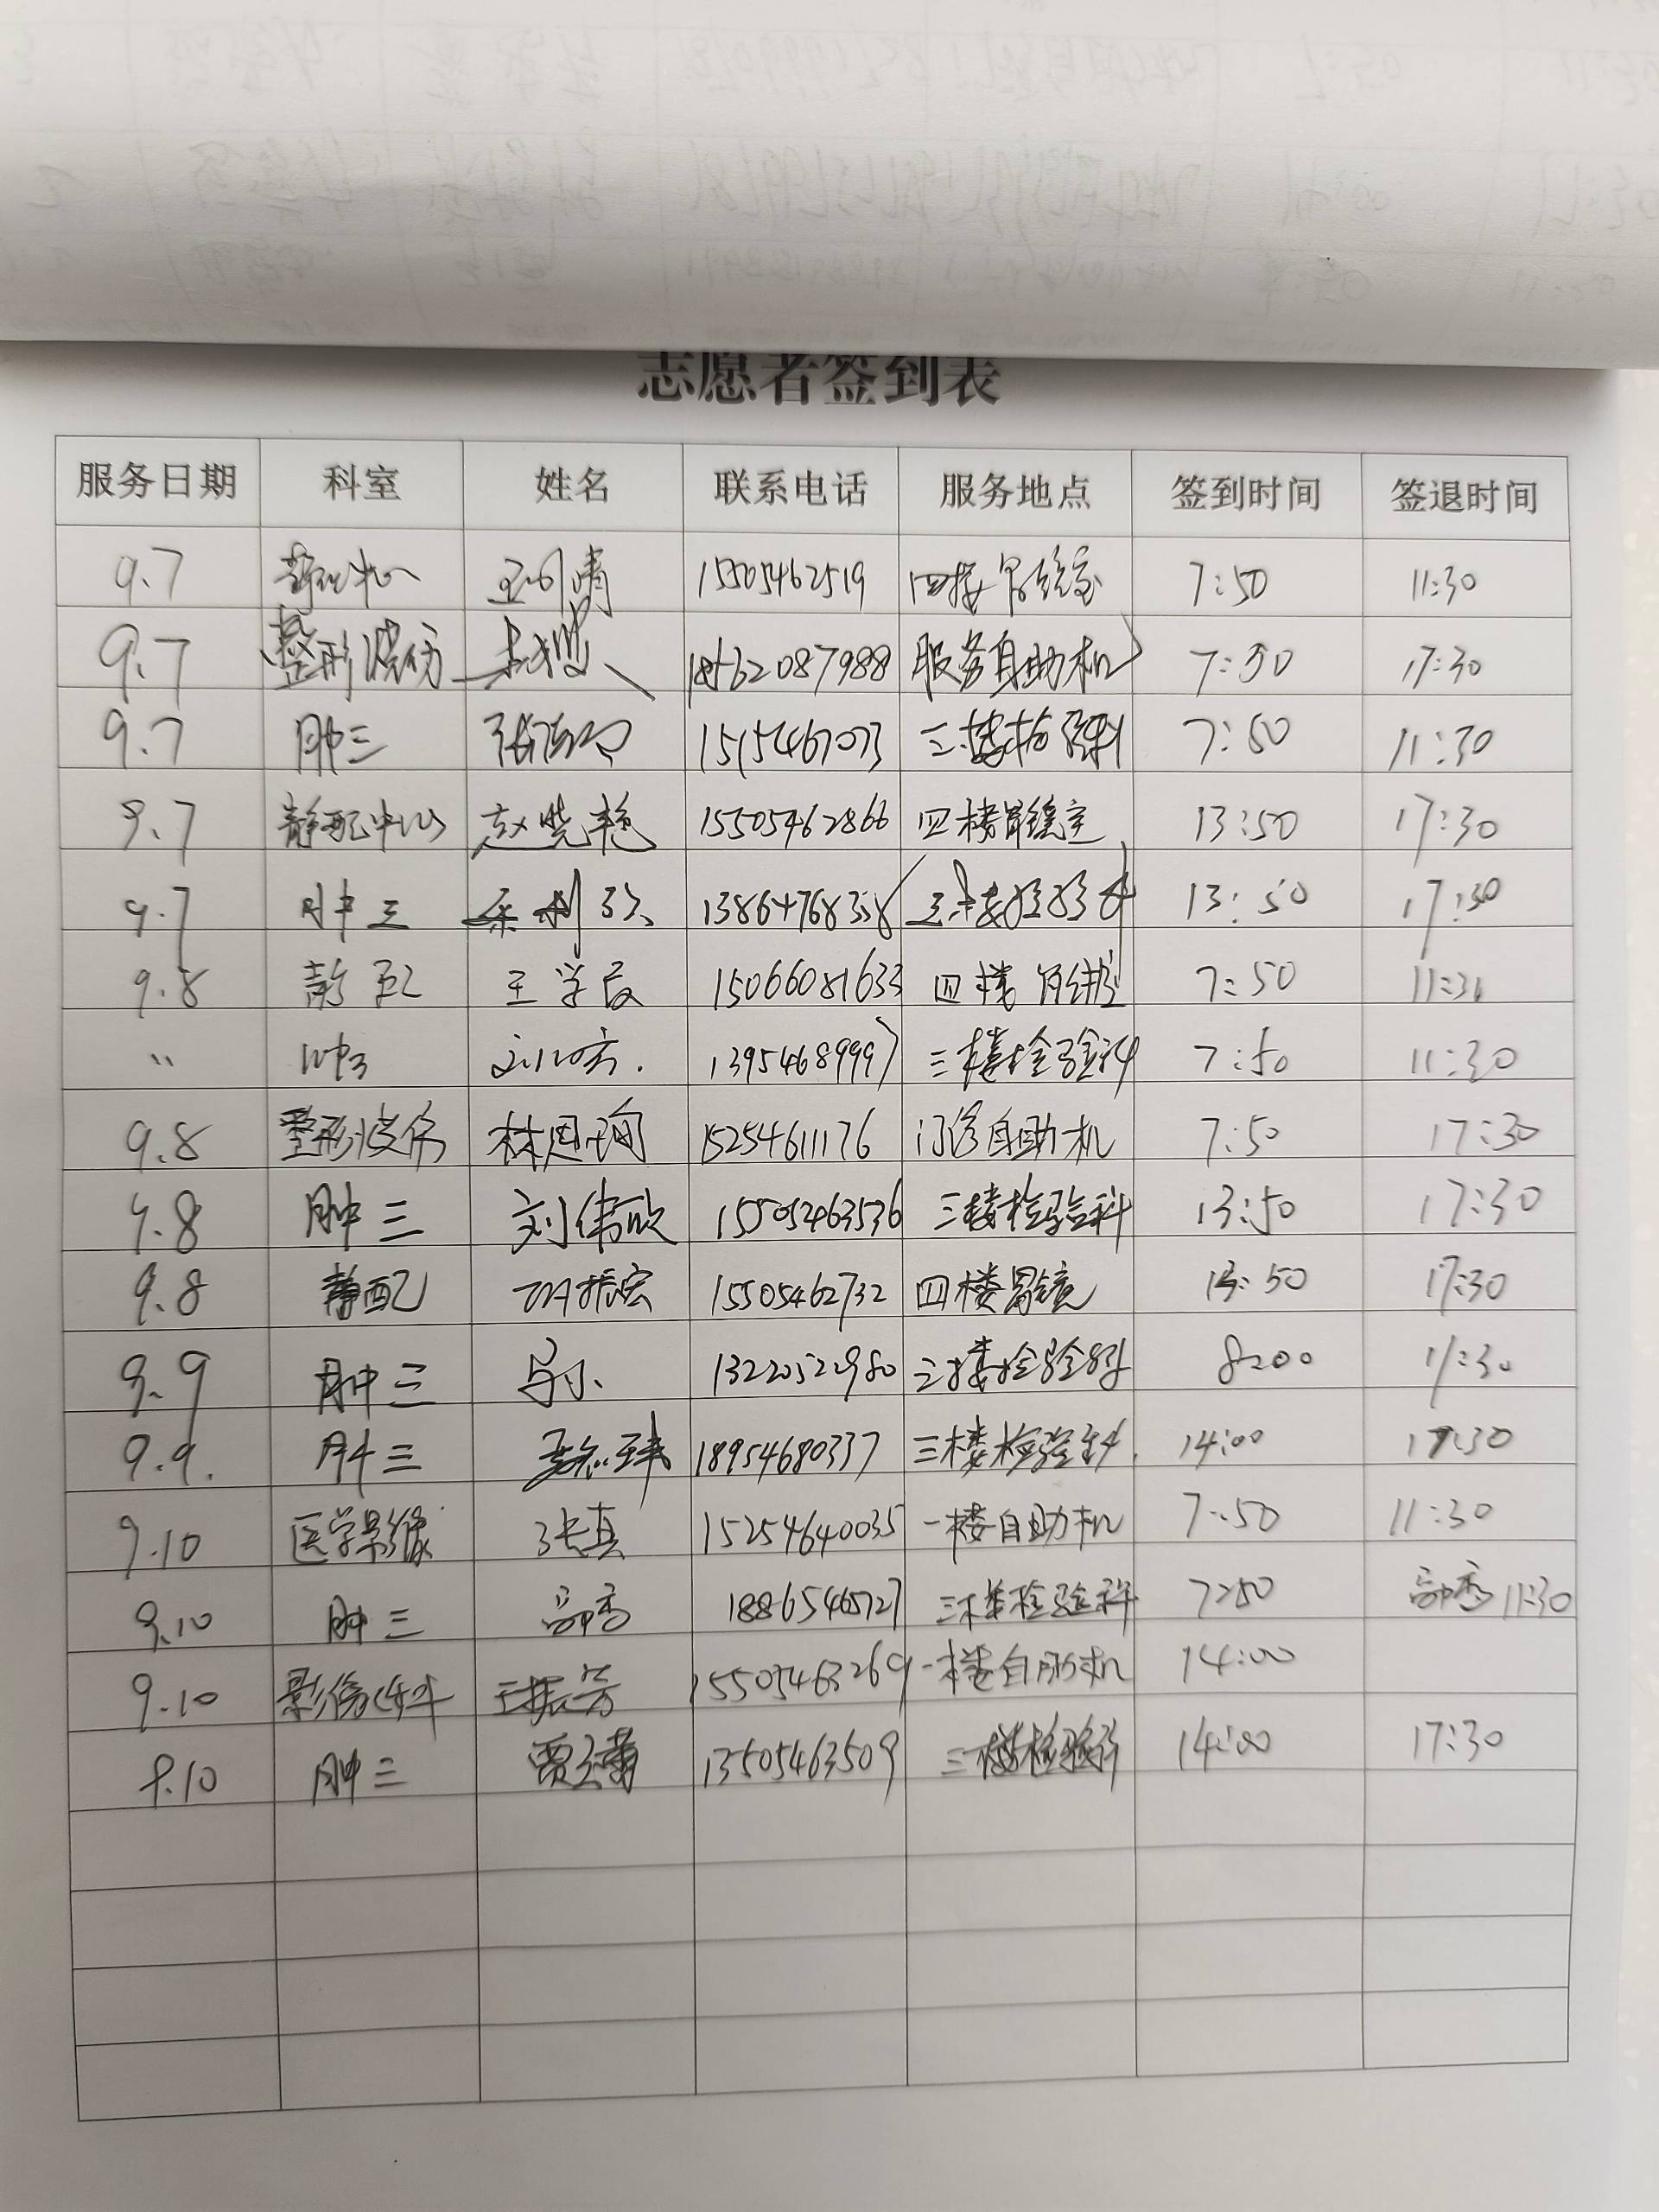 志愿者签到表
服务日期 科室 姓名 联系电话 服务地点 签到时间 签退时间
9.7 15505462519 四楼胃镜室 7:50 11:30
9.7 整形烧伤 18562087988 服务自助机 7:50 17:30
9.7 肿三 1515467073 三楼检验科 7:50 11:30
9.7 静配中心 赵晓艳 15505462866 四楼胃镜室 13:50 17:30
9.7 肿三 13864768358 三楼检验科 13:50 17:30
9.8 静配 王学友 15066081633 四楼胃镜室 7:50 11:31
" 肿3 13954689997 三楼检验科 7:50 11:30
9.8 整形烧伤 林思询 15254611176 门诊自助机 7:50 17:30
9.8 肿三 刘伟欣 15505463536 三楼检验科 13:50 17:30
9.8 静配 15505462732 四楼胃镜 13:50 17:30
9.9 肿三 13220522980 三楼检验科 8:00 11:30
9.9. 肿三 18954680337 三楼检验科. 14:00 17:30
9.10 医学影像 张真 15254640035 一楼自助机 7:50 11:30
9.10 肿三 18865465727 三楼检验科 7:50 11:30
9.10 影像科 王振芳 15505463269 一楼自助机 14:00
9.10 肿三 13505463509 三楼检验科 14:00 17:30